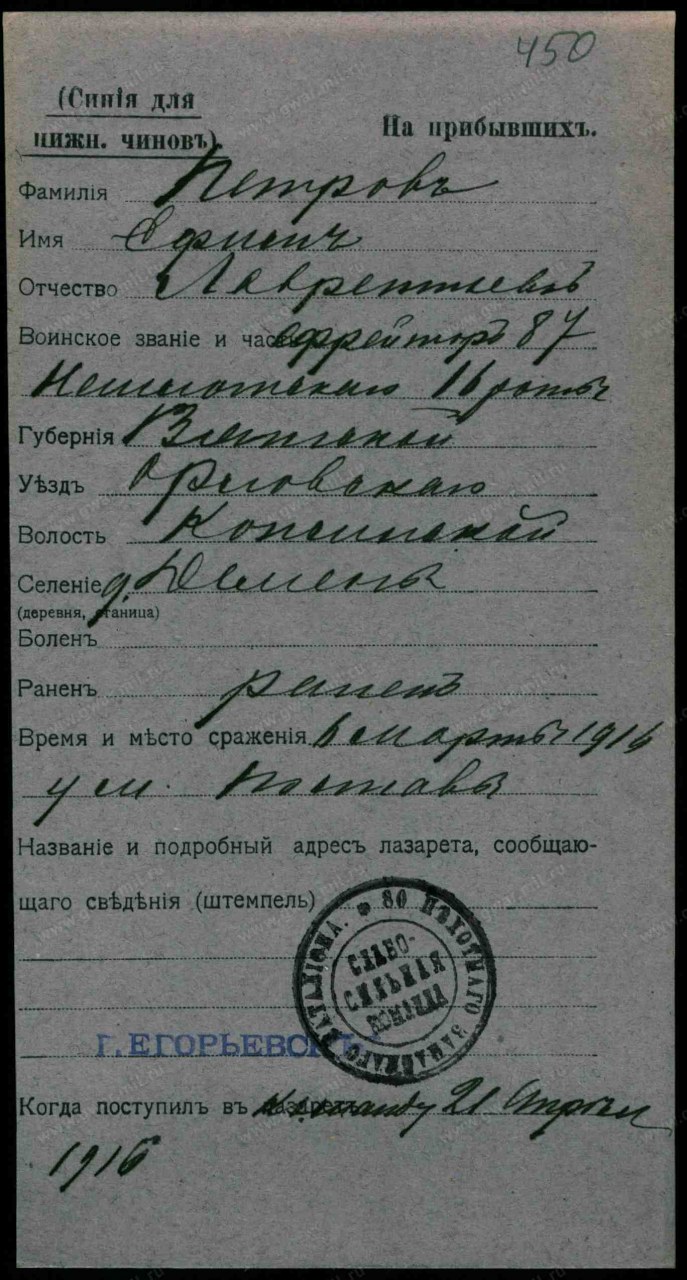 450
(Синія для
нижн. чиновъ)
На прибывшихъ.
Фамилія Петровъ
Имя Ефимъ
Отчество Лаврентьевъ
Воинское званіе и часть ефрейторъ 87
Нейшлотскаго 16 роты
Губернія Вятской
Уѣздъ Орловскаго
Волость
Селеніе д.
(деревня, станица)
Боленъ
Раненъ раненъ
Время и мѣсто сраженія 6 марта 1916
у м. Поставы
Названіе и подробный адресъ лазарета, сообщаю-
щаго свѣдѣнія (штемпель)
80 ПѢХОТНАГО ЗАПАСНАГО БАТАЛІОНА.
СЛАБО-
СИЛЬНАЯ
КОМАНДА
Г. ЕГОРЬЕВСКЪ
Когда поступилъ въ лазаретъ команду 21 Апрѣля
1916